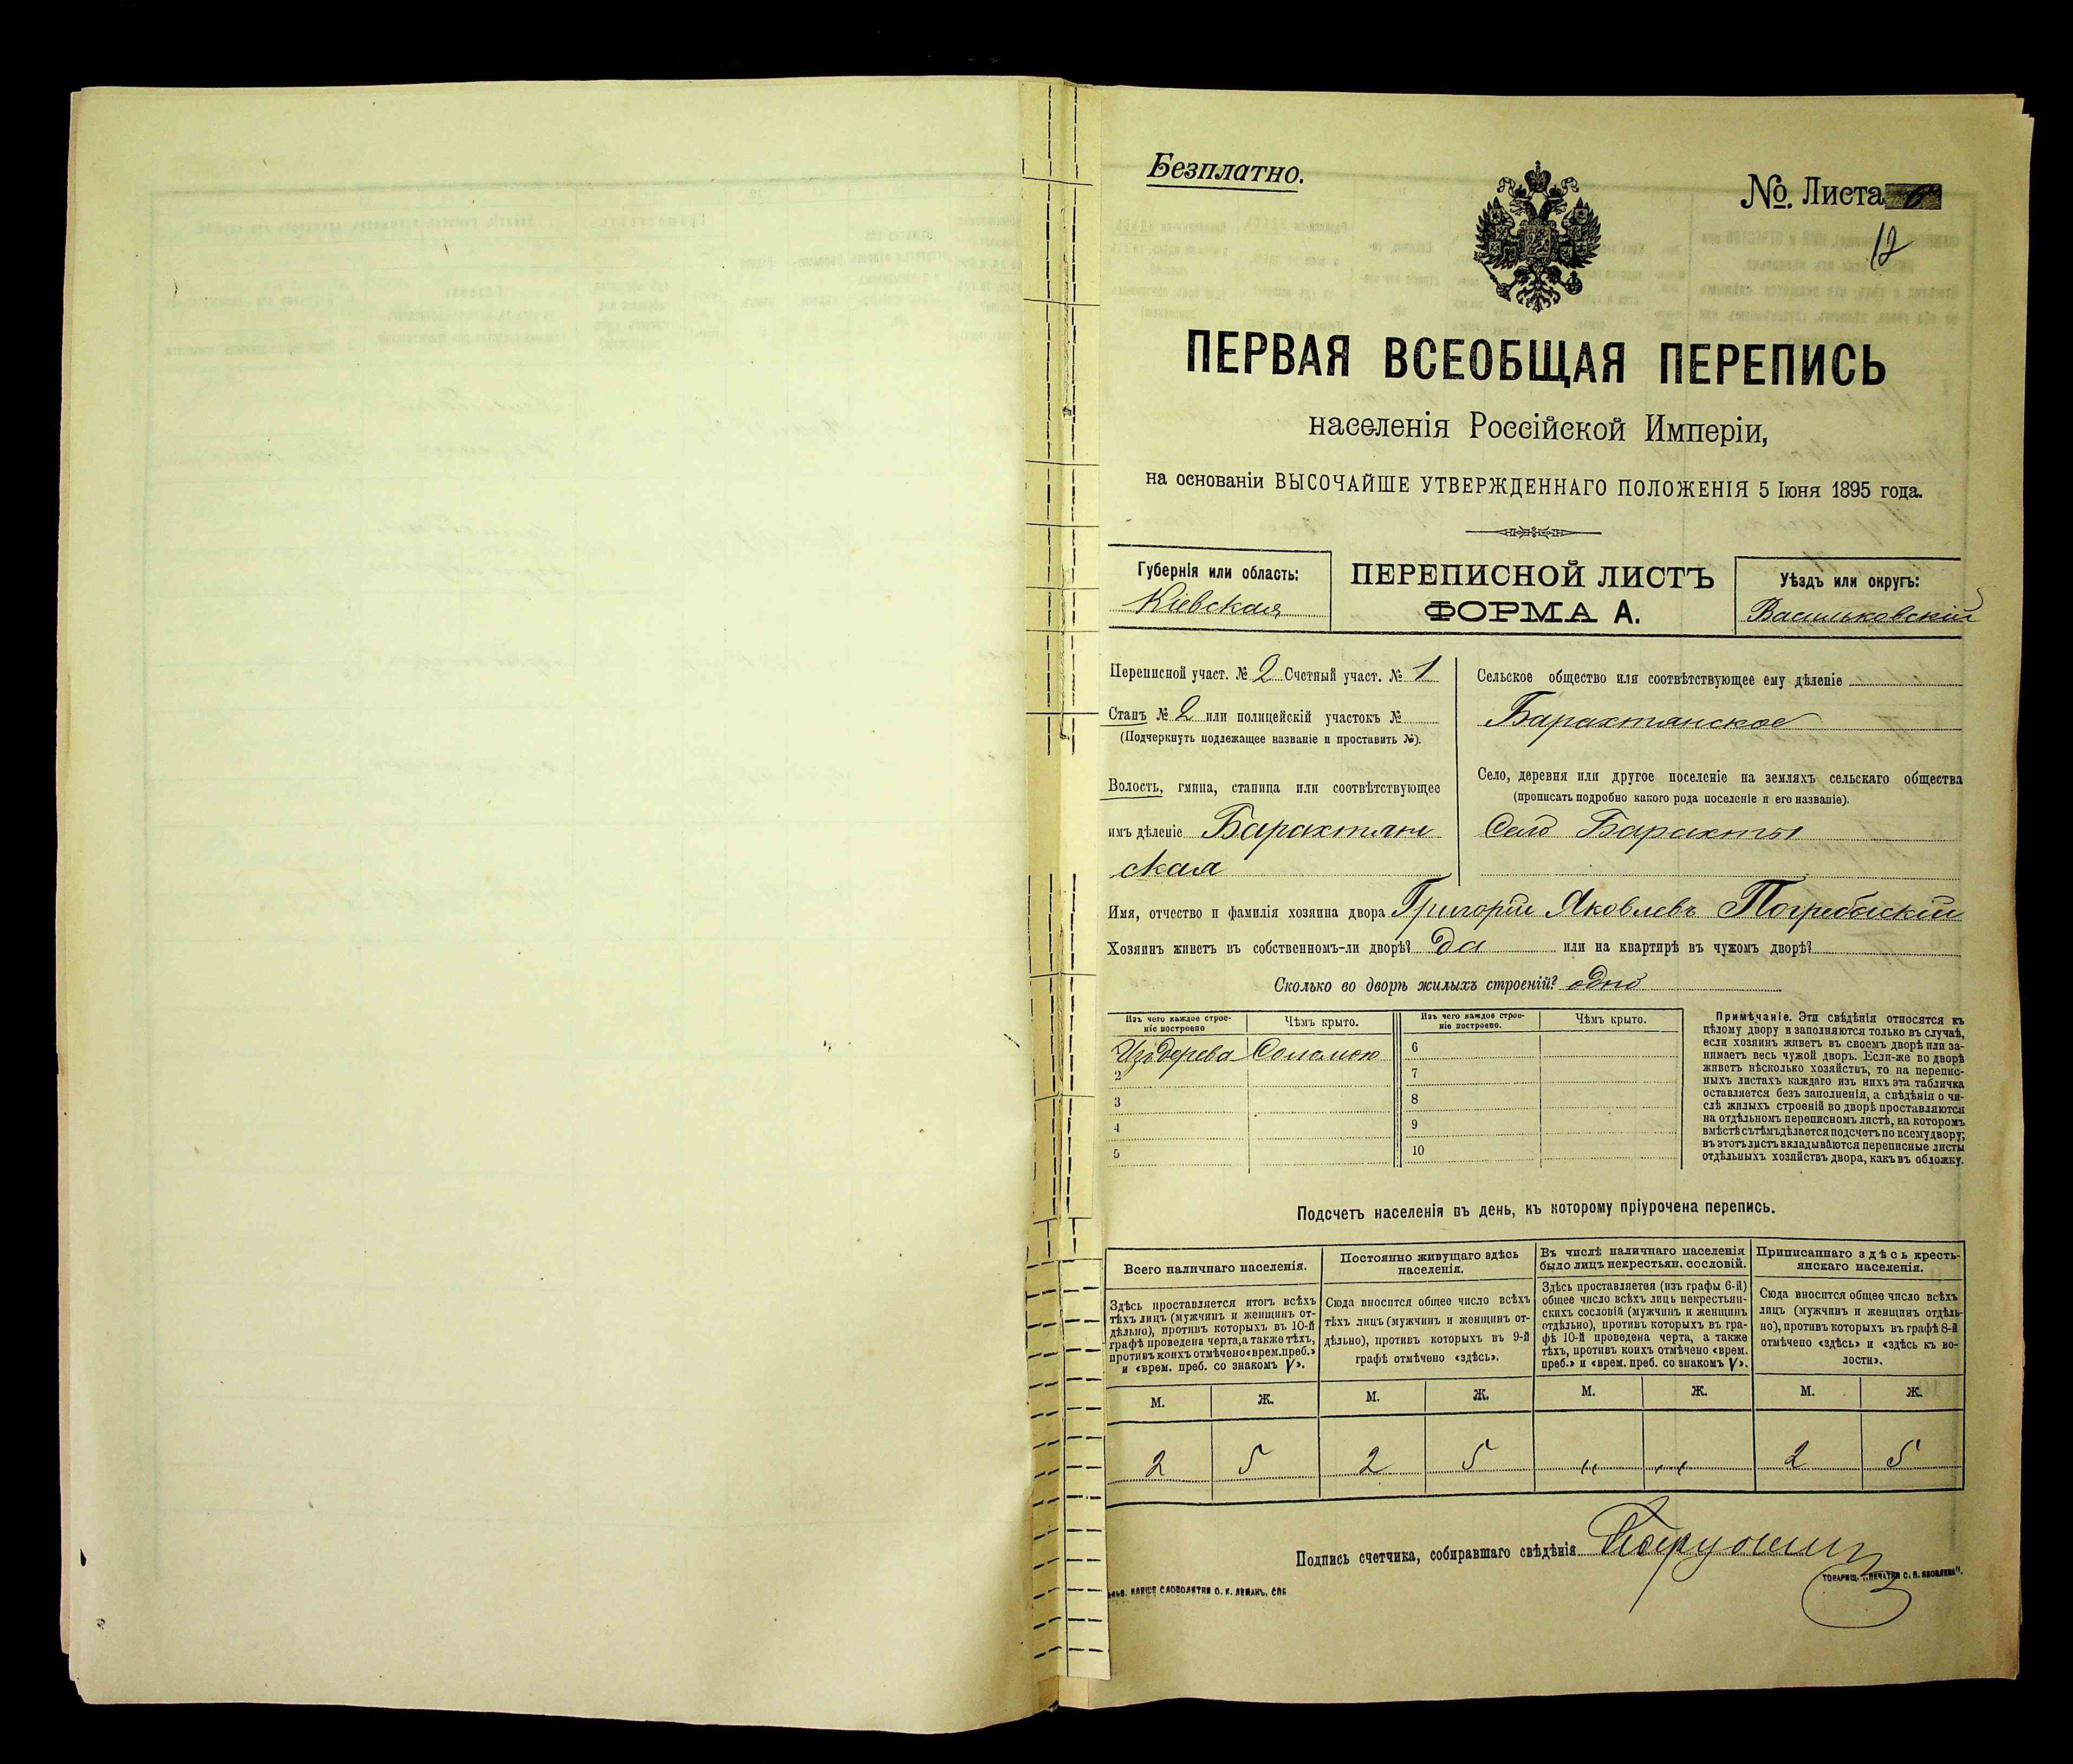 Безплатно.
№. Листа
12
ПЕРВАЯ ВСЕОБЩАЯ ПЕРЕПИСЬ
населенія Россійской Имперіи,
на основаніи ВЫСОЧАЙШЕ УТВЕРЖДЕННАГО ПОЛОЖЕНІЯ 5 Іюня 1895 года.
Губернія или область:
Кіевская
ПЕРЕПИСНОЙ ЛИСТЪ
ФОРМА А.
Уѣздъ или округъ:
Васильковскій
Переписной участ. № 2 Счетный участ. № 1
Станъ № 2 или полицейскій участокъ №
(Подчеркнуть подлежащее названіе и проставить №).
Волость, гмина, станица или соотвѣтствующее
имъ дѣленіе Барахтян
ская
Сельское общество или соотвѣтствующее ему дѣленіе
Барахтянское
Село, деревня или другое поселеніе на земляхъ сельскаго общества
(прописать подробно какого рода поселеніе и его названіе).
Село Барахты
Имя, отчество и фамилія хозяина двора Григорій Яковлевъ Погребыскій
Хозяинъ живетъ въ собственномъ-ли дворѣ? да или на квартирѣ въ чужомъ дворѣ?
Сколько во дворѣ жилыхъ строеній? одно
Изъ чего каждое строе-
ніе построено
Чѣмъ крыто.
Изъ чего каждое строе-
ніе построено.
Чѣмъ крыто.
Изъ дерева Соломою
2
3
4
5
6
7
8
9
10
Примѣчаніе. Эти свѣдѣнія относятся къ
цѣлому двору и заполняются только въ случаѣ,
если хозяинъ живетъ въ своемъ дворѣ или за-
нимаетъ весь чужой дворъ. Если-же во дворѣ
живетъ нѣсколько хозяйствъ, то на перепис-
ныхъ листахъ каждаго изъ нихъ эта табличка
оставляется безъ заполненія, а свѣдѣнія о чи-
слѣ жилыхъ строеній во дворѣ проставляются
на отдѣльномъ переписномъ листѣ, на которомъ
вмѣстѣ съ тѣмъ дѣлается подсчетъ по всему двору;
въ этотъ листъ вкладываются переписные листы
отдѣльныхъ хозяйствъ двора, какъ въ обложку.
Подсчетъ населенія въ день, къ которому пріурочена перепись.
Всего наличнаго населенія.
Здѣсь проставляется итогъ всѣхъ
тѣхъ лицъ (мужчинъ и женщинъ от-
дѣльно), противъ которыхъ въ 10-й
графѣ проведена черта, а также тѣхъ,
противъ коихъ отмѣчено «врем. преб.»
и «врем. преб. со знакомъ V».
Постоянно живущаго здѣсь
населенія.
Сюда вносится общее число всѣхъ
тѣхъ лицъ (мужчинъ и женщинъ от-
дѣльно), противъ которыхъ въ 9-й
графѣ отмѣчено «здѣсь».
Въ числѣ наличнаго населенія
было лицъ некрестьян. сословій.
Здѣсь проставляется (изъ графы 6-й)
общее число всѣхъ лицъ некрестьян-
скихъ сословій (мужчинъ и женщинъ
отдѣльно), противъ которыхъ въ гра-
фѣ 10-й проведена черта, а также
тѣхъ, противъ коихъ отмѣчено «врем.
преб.» и «врем. преб. со знакомъ V».
Приписаннаго здѣсь кресть-
янскаго населенія.
Сюда вносится общее число всѣхъ
лицъ (мужчинъ и женщинъ отдѣль-
но), противъ которыхъ въ графѣ 8-й
отмѣчено «здѣсь» и «здѣсь къ во-
лости».
М. Ж. М. Ж. М. Ж. М. Ж.
2 5 2 5 " " 2 5
Подпись счетчика, собиравшаго свѣдѣнія
СЛОВОЛИТНИ О. И. ЛЕМАНЪ, СПБ
ТОВАРИЩ. „ПЕЧАТНЯ С. П. ЯКОВЛЕВА".